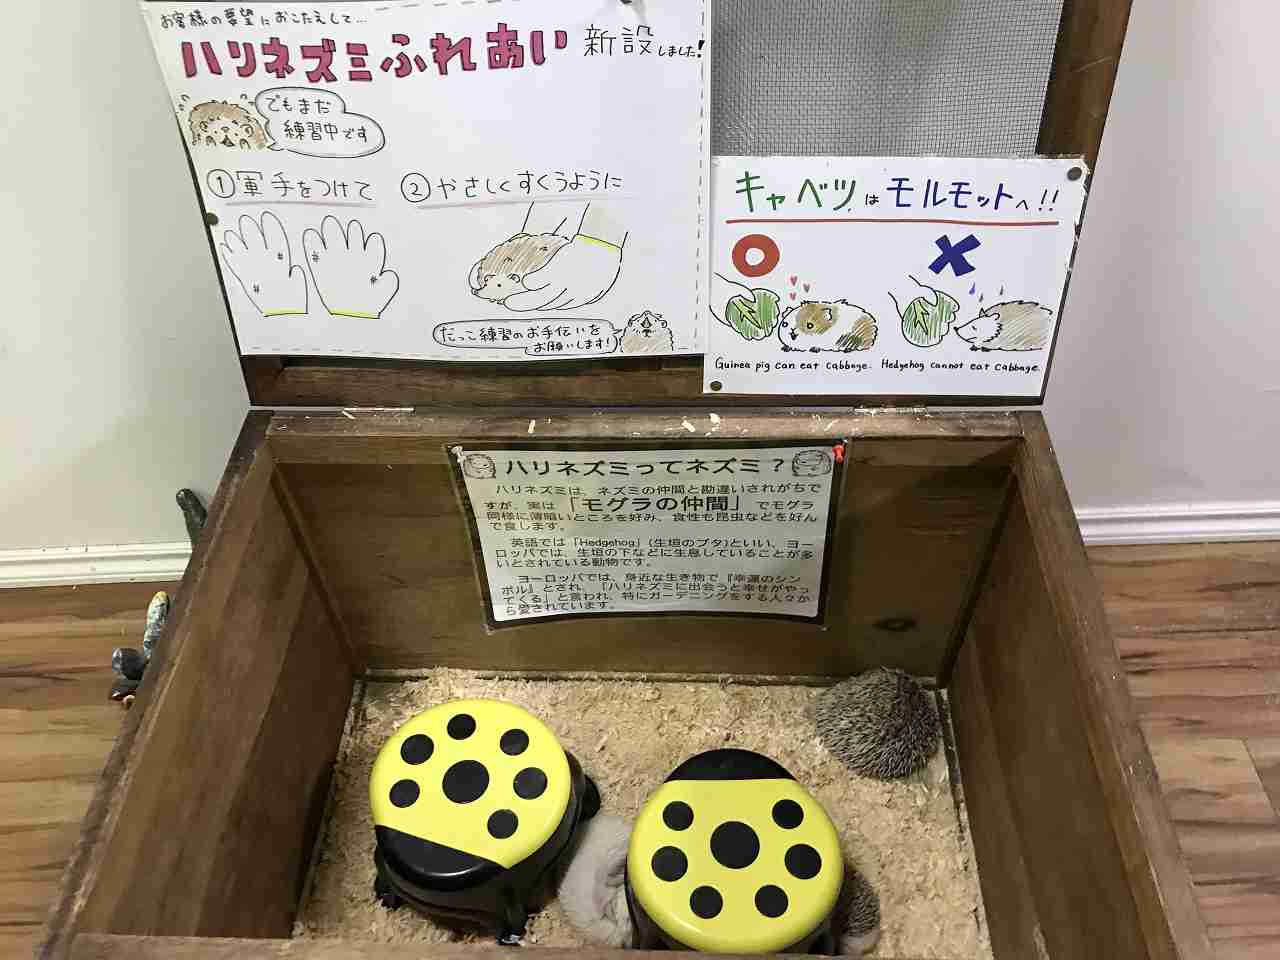 お客様の要望におこたえして...
ハリネズミふれあい新設しました!
でもまだ
練習中です
①軍手をつけて
②やさしくすくうように
だっこ練習のお手伝いを
お願いします!
キャベツはモルモットへ!!
Guinea pig can eat cabbage.
Hedgehog cannot eat cabbage.
ハリネズミってネズミ?
ハリネズミは、ネズミの仲間と勘違いされがちで
すが、実は「モグラの仲間」でモグラ
同様に薄暗いところを好み、食性も昆虫などを好ん
で食します。
英語では「Hedgehog」(生垣のブタ)といい、ヨー
ロッパでは、生垣の下などに生息していることが多
いとされている動物です。
ヨーロッパでは、身近な生き物で『幸運のシン
ボル』とされ、「ハリネズミに出会うと幸せがやっ
てくる」と言われ、特にガーデニングをする人々か
ら愛されています。